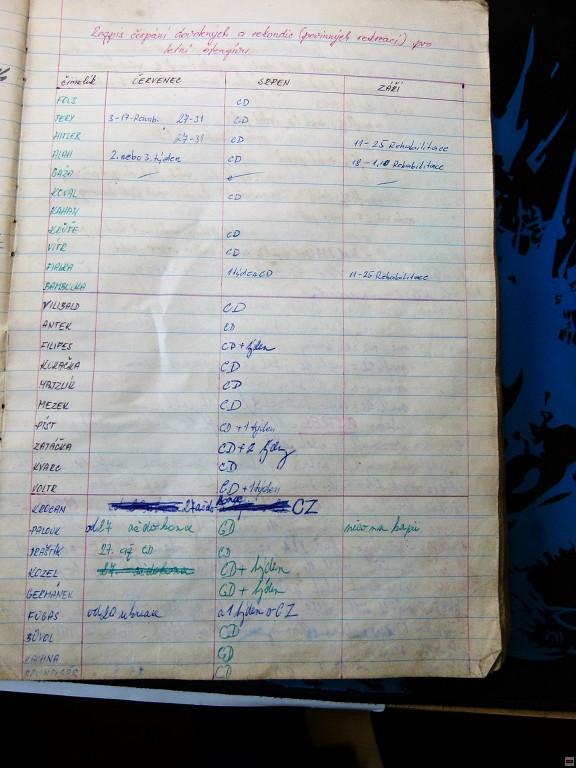 Rozpis čerpání dovolených a rekondic (povinných rekreací) pro
letní
čmelík ČERVENEC SRPEN ZÁŘÍ
FOUS CD
TERY 3-17-Romb. 27-31 CD
HITLER 27-31 CD 11-25 Rehabilitace
ALAN 2. nebo 3. týden CD 18-1,10 Rehabilitace
GAŽA
KOVAL CD
KAHAN
KRŮTĚ CD
VÍTR CD
FIALKA 1 týden CD 11-25 Rehabilitace
BAMBULKA
VILIBALD CD
ANTEK CD
FILIPES CD + týden
KUKAČKA CD
MAJZLÍK CD
MEZEK CD
PÍST CD + 1 týden
ZATÁČKA CD + 2 týdny
KVARC CD
VOLTR CD + 1 týden
KROCAN 27 až do konce CZ
PALOUK od 27 až do konce CD něco na kapii
27. až CD CD
KOZEL 27. až do kona CD + týden
GERMÁNEK CD + týden
FUGAS od 20 rekreace a 1 týden v CZ
BŮVOL CD
CD
CD